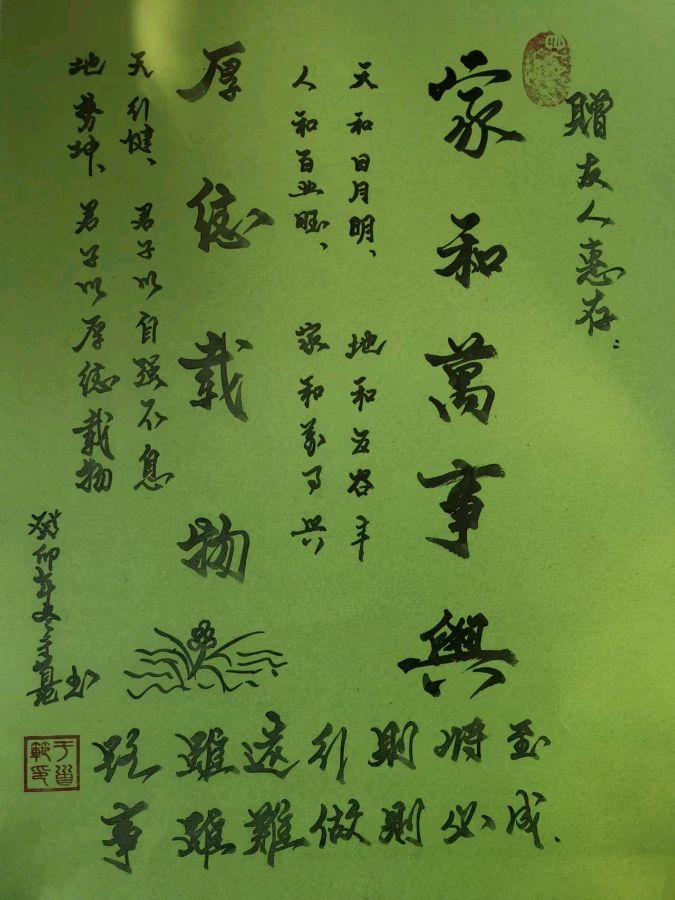 赠友人惠存：
家和萬事興
天和日月明、地和五谷丰
人和百业旺、家和万事兴
厚德载物
天行健、君子以自强不息
地势坤、君子以厚德載物
癸卯年冬
书
路雖遠行則將至
事雖難做則必成.